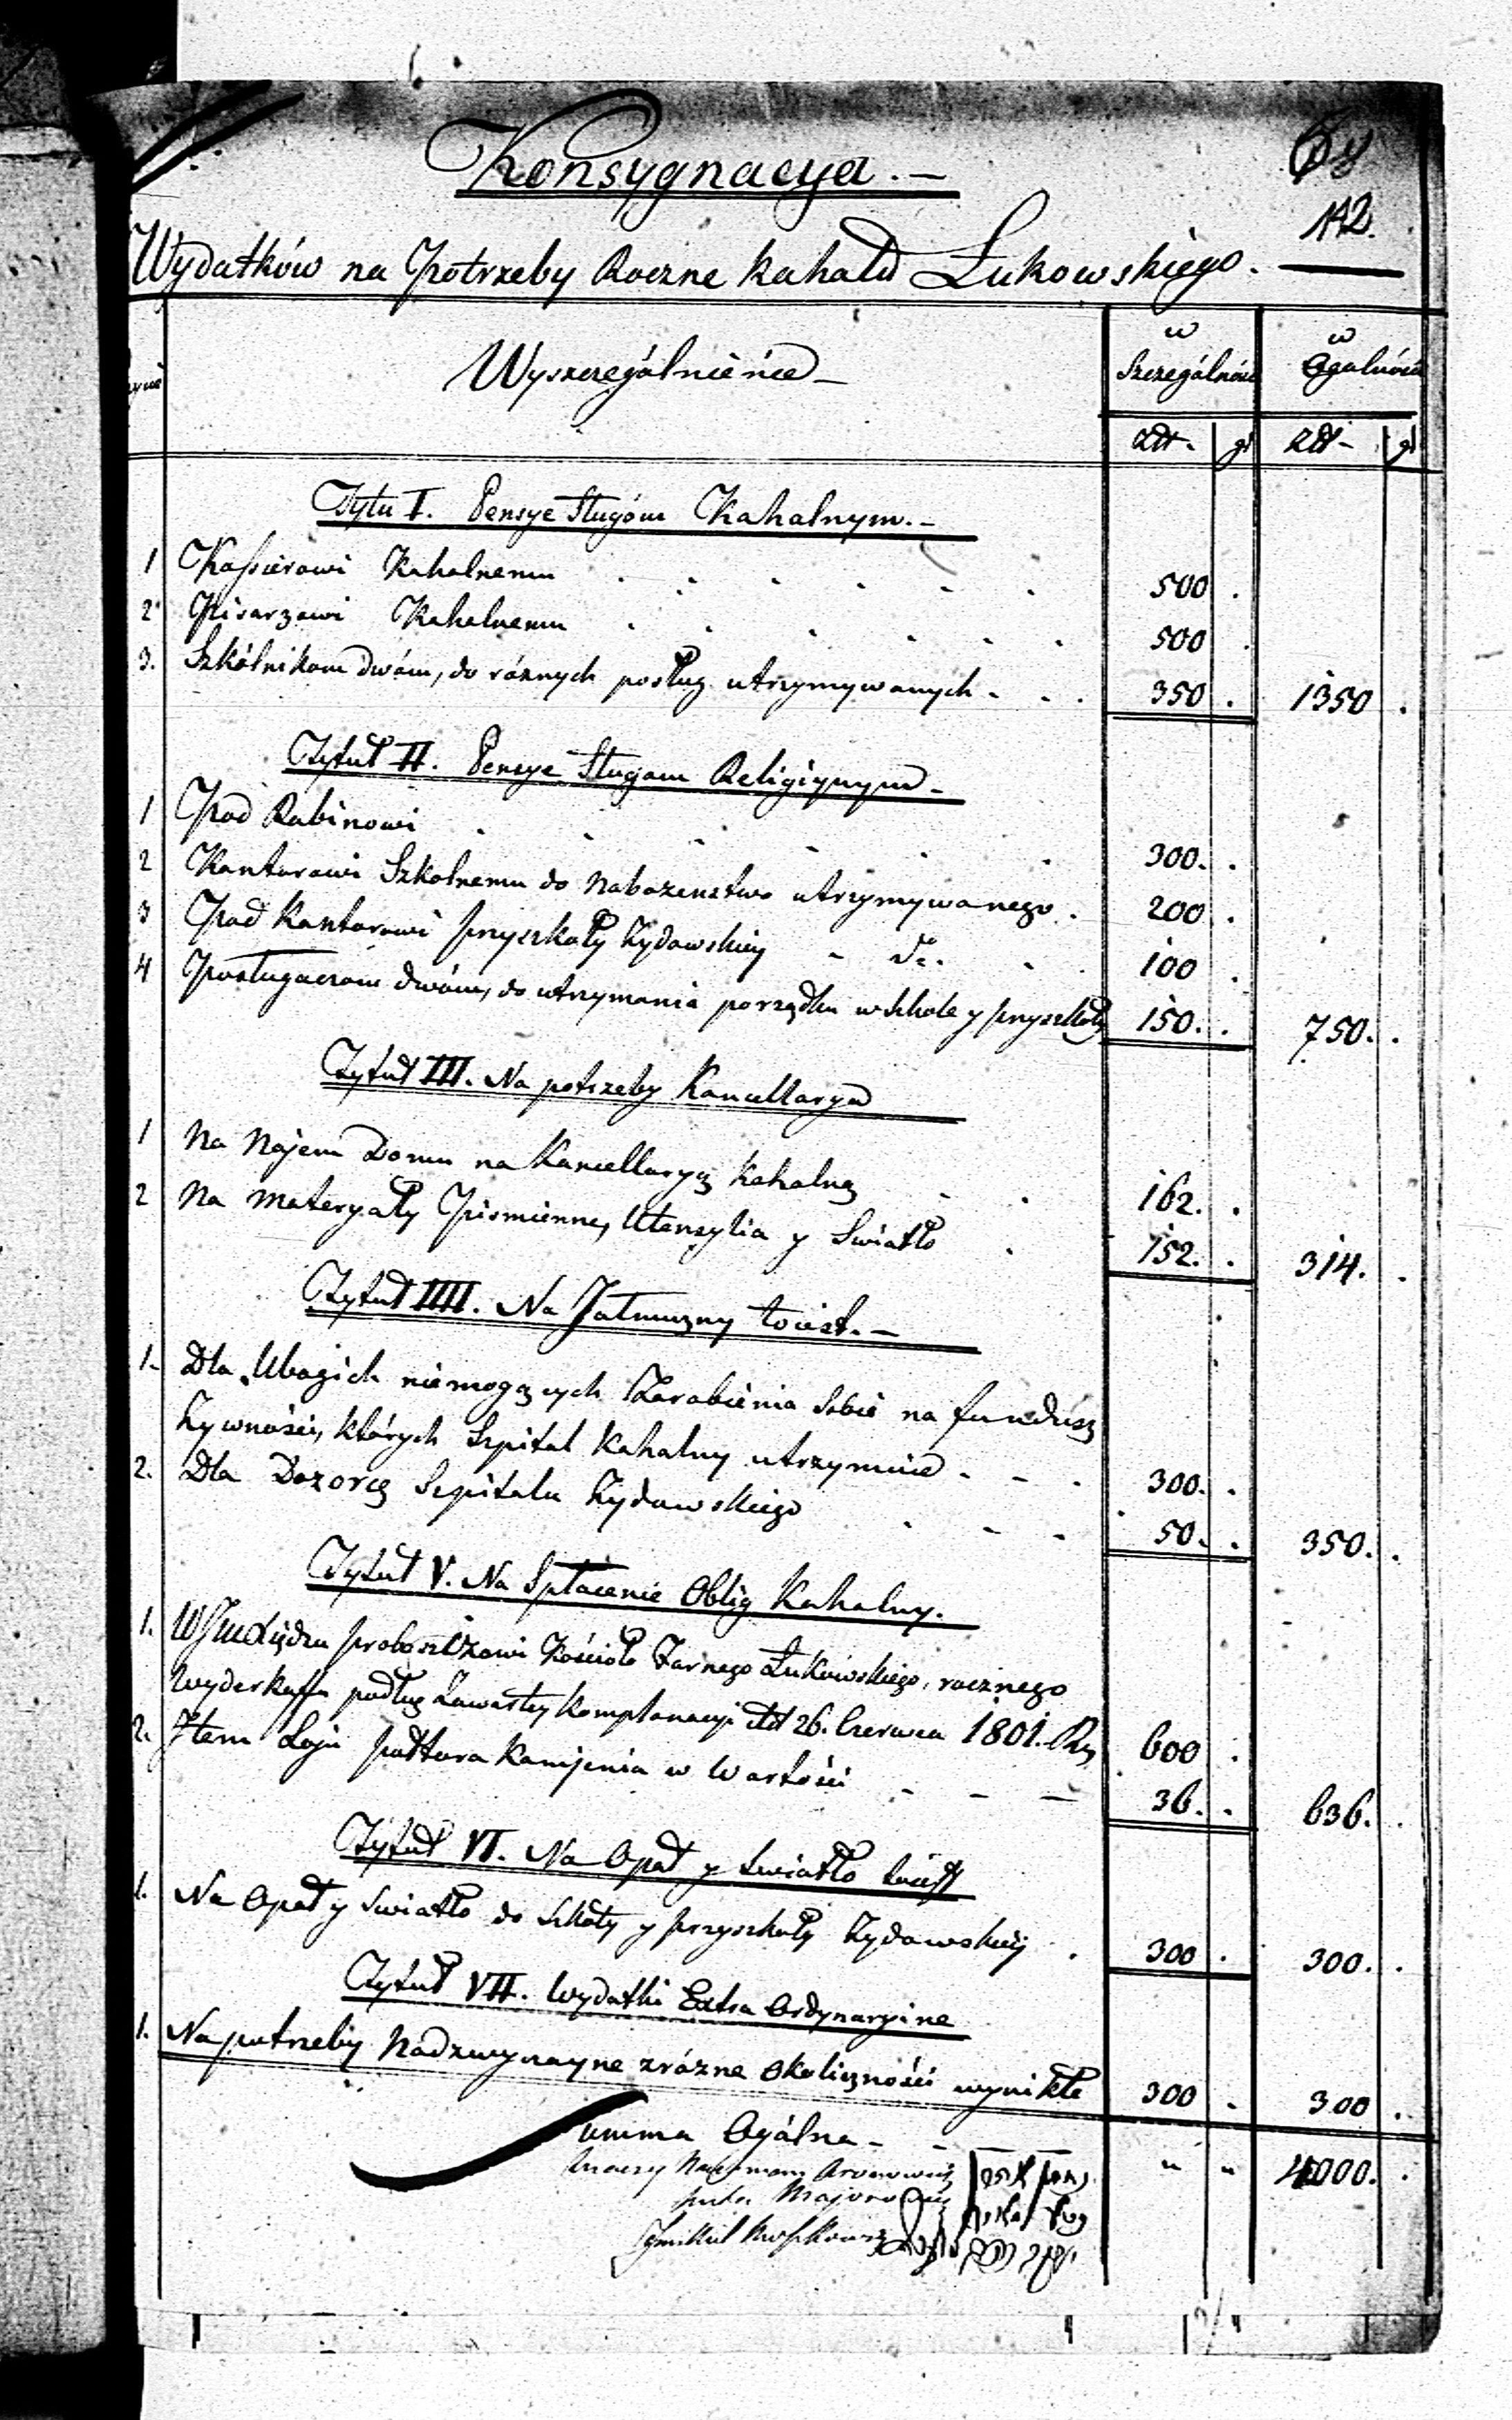 Konsygnacya. —
112.
Wydatków na Potrzeby Roczne Kahału Łukowskiego. —
Wyszczególnienie —
w Szczególności
w Ogulności
Złt. gr Złt — gr
Tytu I. Pensye Sługóm Kahalnym. —
1 Kassierowi Kahalnemu . . . . . . 500 .
2 Pisarzowi Kahalnemu . . . . . . 500 .
3. Szkólnikom dwóm, do róznych posług utrzymywanych . . . 350 . 1350 .
Tytuł II. Pensye Sługom Religiynym —
1 Pod Rabinowi . . . . . . 300. .
2 Kantorowi Szkolnemu do Nabozenstwa utrzymywanego . 200 .
3 Pod Kantorowi przyszkoły Zydowskiey - do. . . 100 .
4 Posługaczom dwóm, do utrzymania porządku w szkole y przyszkoły 150. . 750. .
Tytuł III. Na potrzeby Kancellarya
1 Na Najem Domu na Kancellaryą Kahalną . . 162. .
2 Na Materyały Pismienne, Utensylia y Swiatło . 152. . 314. .
Tytuł IIII. Na Jałmuzny toiest. —
1. Dla Ubogich niemogących Zarobienia Sobie na fundusz
Zywności, których Szpital Kahalny utrzymuie - - . 300. .
2. Dla Dozorcy Szpitala Zydowskiego . - - 50. . 350. .
Tytuł V. Na Spłacenie Oblig Kahalny.
1. Xiędzu proboszczowi Kościoła Farnego Łukowskiego, rocznego
Wyderkaffu podług Zawartey Komplanacyi dd 26. Czerwca 1801. 600 .
2. Item Loju półtora Kamienia w Wartości - - — 36. . 636. .
Tytuł VI. Na Opał y Swiatło toiest
1. Na Opał y Swiatło do Szkoły y przyszkoły Zydowskiey . 300 . 300. .
Tytuł VII. Wydatki Extra Ordynaryine
1. Na potrzeby Nadzwyczayne zrózne Okoliczności wynikłe 300 . 300 .
Summa Ogólna - - " " 4000. .